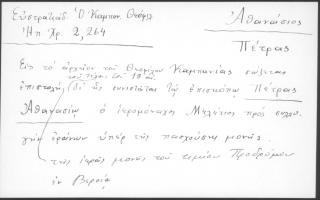 Εὐστρατιάδ. Ὁ Καμπαν. Θεόφιλ.
Ἠπ Χρ. 2, 264
Ἀθανάσιος
Πέτρας
Εἰς τὸ ἀρχεῖον τοῦ Θεοφίλου Καμπανίας σώζεται
τοῦ τέλους τοῦ 18 αἰ.
ἐπιστολὴ (δι' ἧς συνιστᾶται τῷ ἐπισκόπῳ Πέτρας
Ἀθανασίῳ ὁ ἱερομόναχος Μελέτιος πρὸς συλλο
γὴν ἐράνων ὑπὲρ τῆς πασχούσης μονῆς
τῆς ἱερᾶς μονῆς τοῦ τιμίου Προδρόμου
ἐν Βεροίᾳ